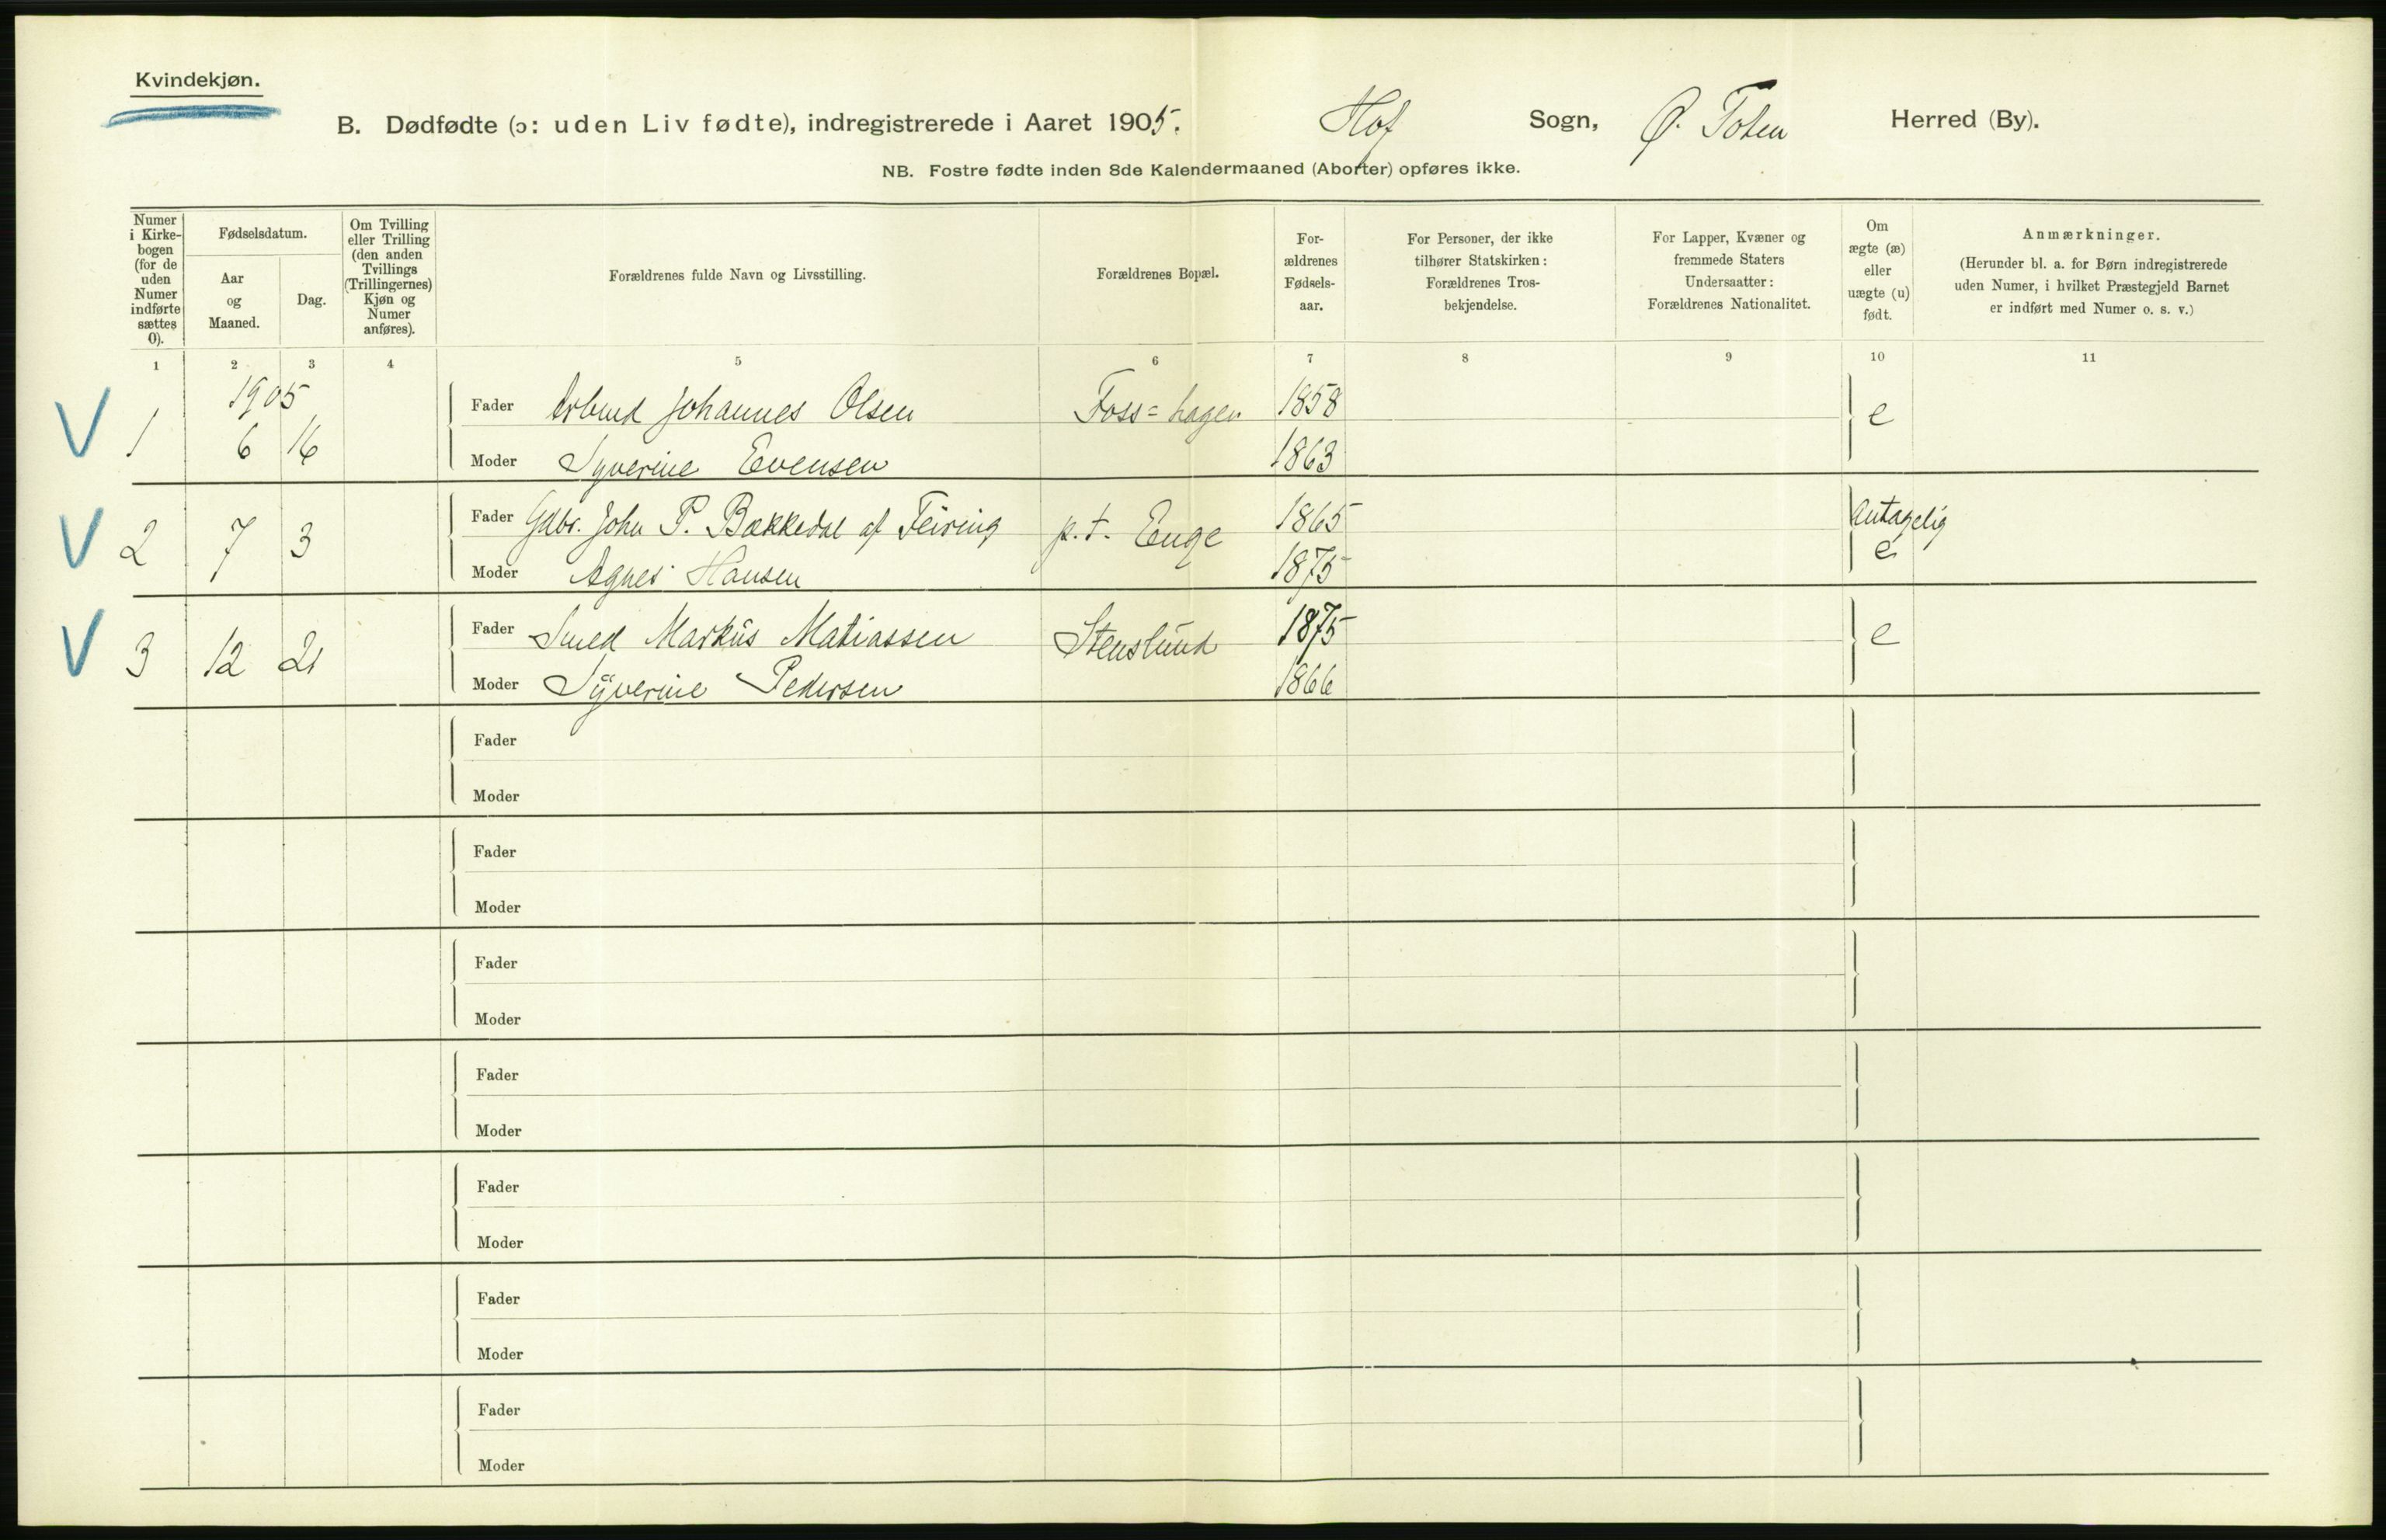 Kvindekjøn.
B. Dødfødte (ɔ: uden Liv fødte), indregistrerede i Aaret 1905. Hof Sogn, Ø. Toten Herred (By).
NB. Fostre fødte inden 8de Kalendermaaned (Aborter) opføres ikke.
Numer i Kirkebogen (for de uden Numer indførte sættes 0).
Fødselsdatum.
Aar og Maaned.
Dag.
Om Tvilling eller Trilling (den anden Tvillings (Trillingernes) Kjøn og Numer anføres).
Forældrenes fulde Navn og Livsstilling.
Forældrenes Bopæl.
Forældrenes Fødselsaar.
For Personer, der ikke tilhører Statskirken: Forældrenes Trosbekjendelse.
For Lapper, Kvæner og fremmede Staters Undersaatter: Forældrenes Nationalitet.
Om ægte (æ) eller uægte (u) født.
Anmærkninger.
(Herunder bl. a. for Børn indregistrerede uden Numer, i hvilket Præstegjeld Barnet er indført med Numer o. s. v.)
1 2 3 4 5 6 7 8 9 10 11
1905
V 1 6 16 Fader Arbmd Johannes Olsen Foss=hagen 1858 e
Moder Syverine Evensen 1863
V 2 7 3 Fader Gdbr. John P. Bækkedal af Feiring p.t. Enge 1865 Antagelig e
Moder Agnes Hansen 1875
V 3 12 21 Fader Smed Markus Matiassen Stenslund 1875 e
Moder Syverine Pedersen 1866
Fader
Moder
Fader
Moder
Fader
Moder
Fader
Moder
Fader
Moder
Fader
Moder
Fader
Moder